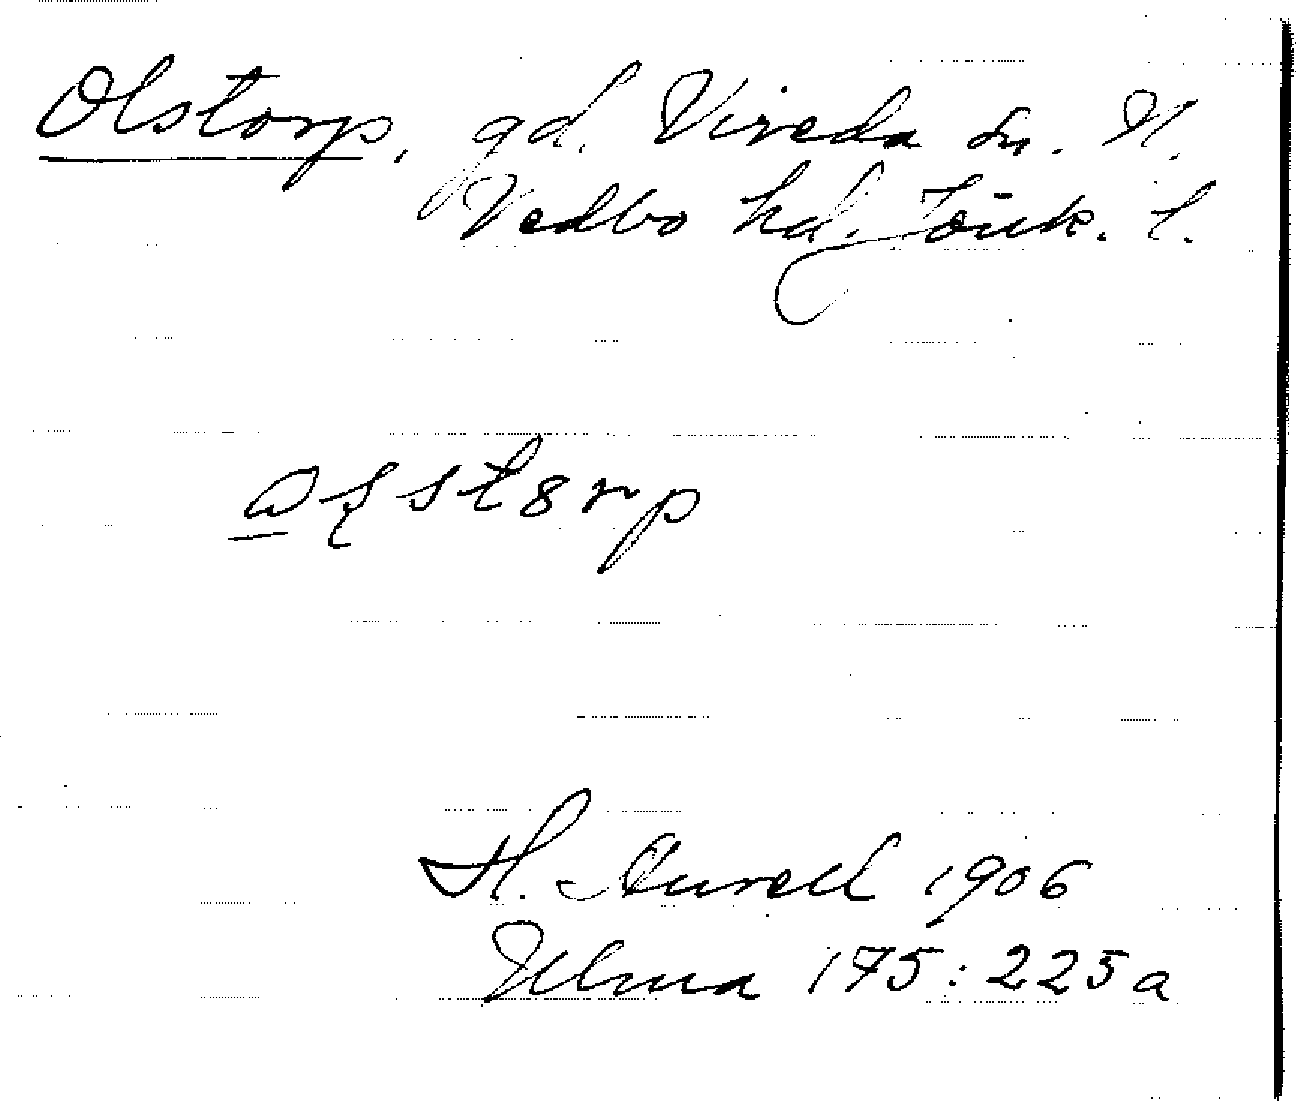 Olstorp, gd. Vireda sn. N.
Vedbo hd. Jönk. l.
H. Aurell 1906
Ulma 175:225a